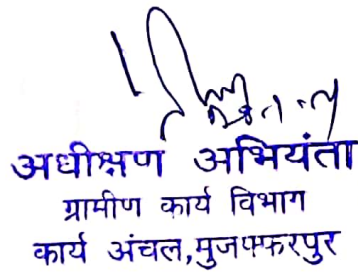 अधीक्षण अभियंता
ग्रामीण कार्य विभाग
कार्य अंचल,मुजफ्फरपुर